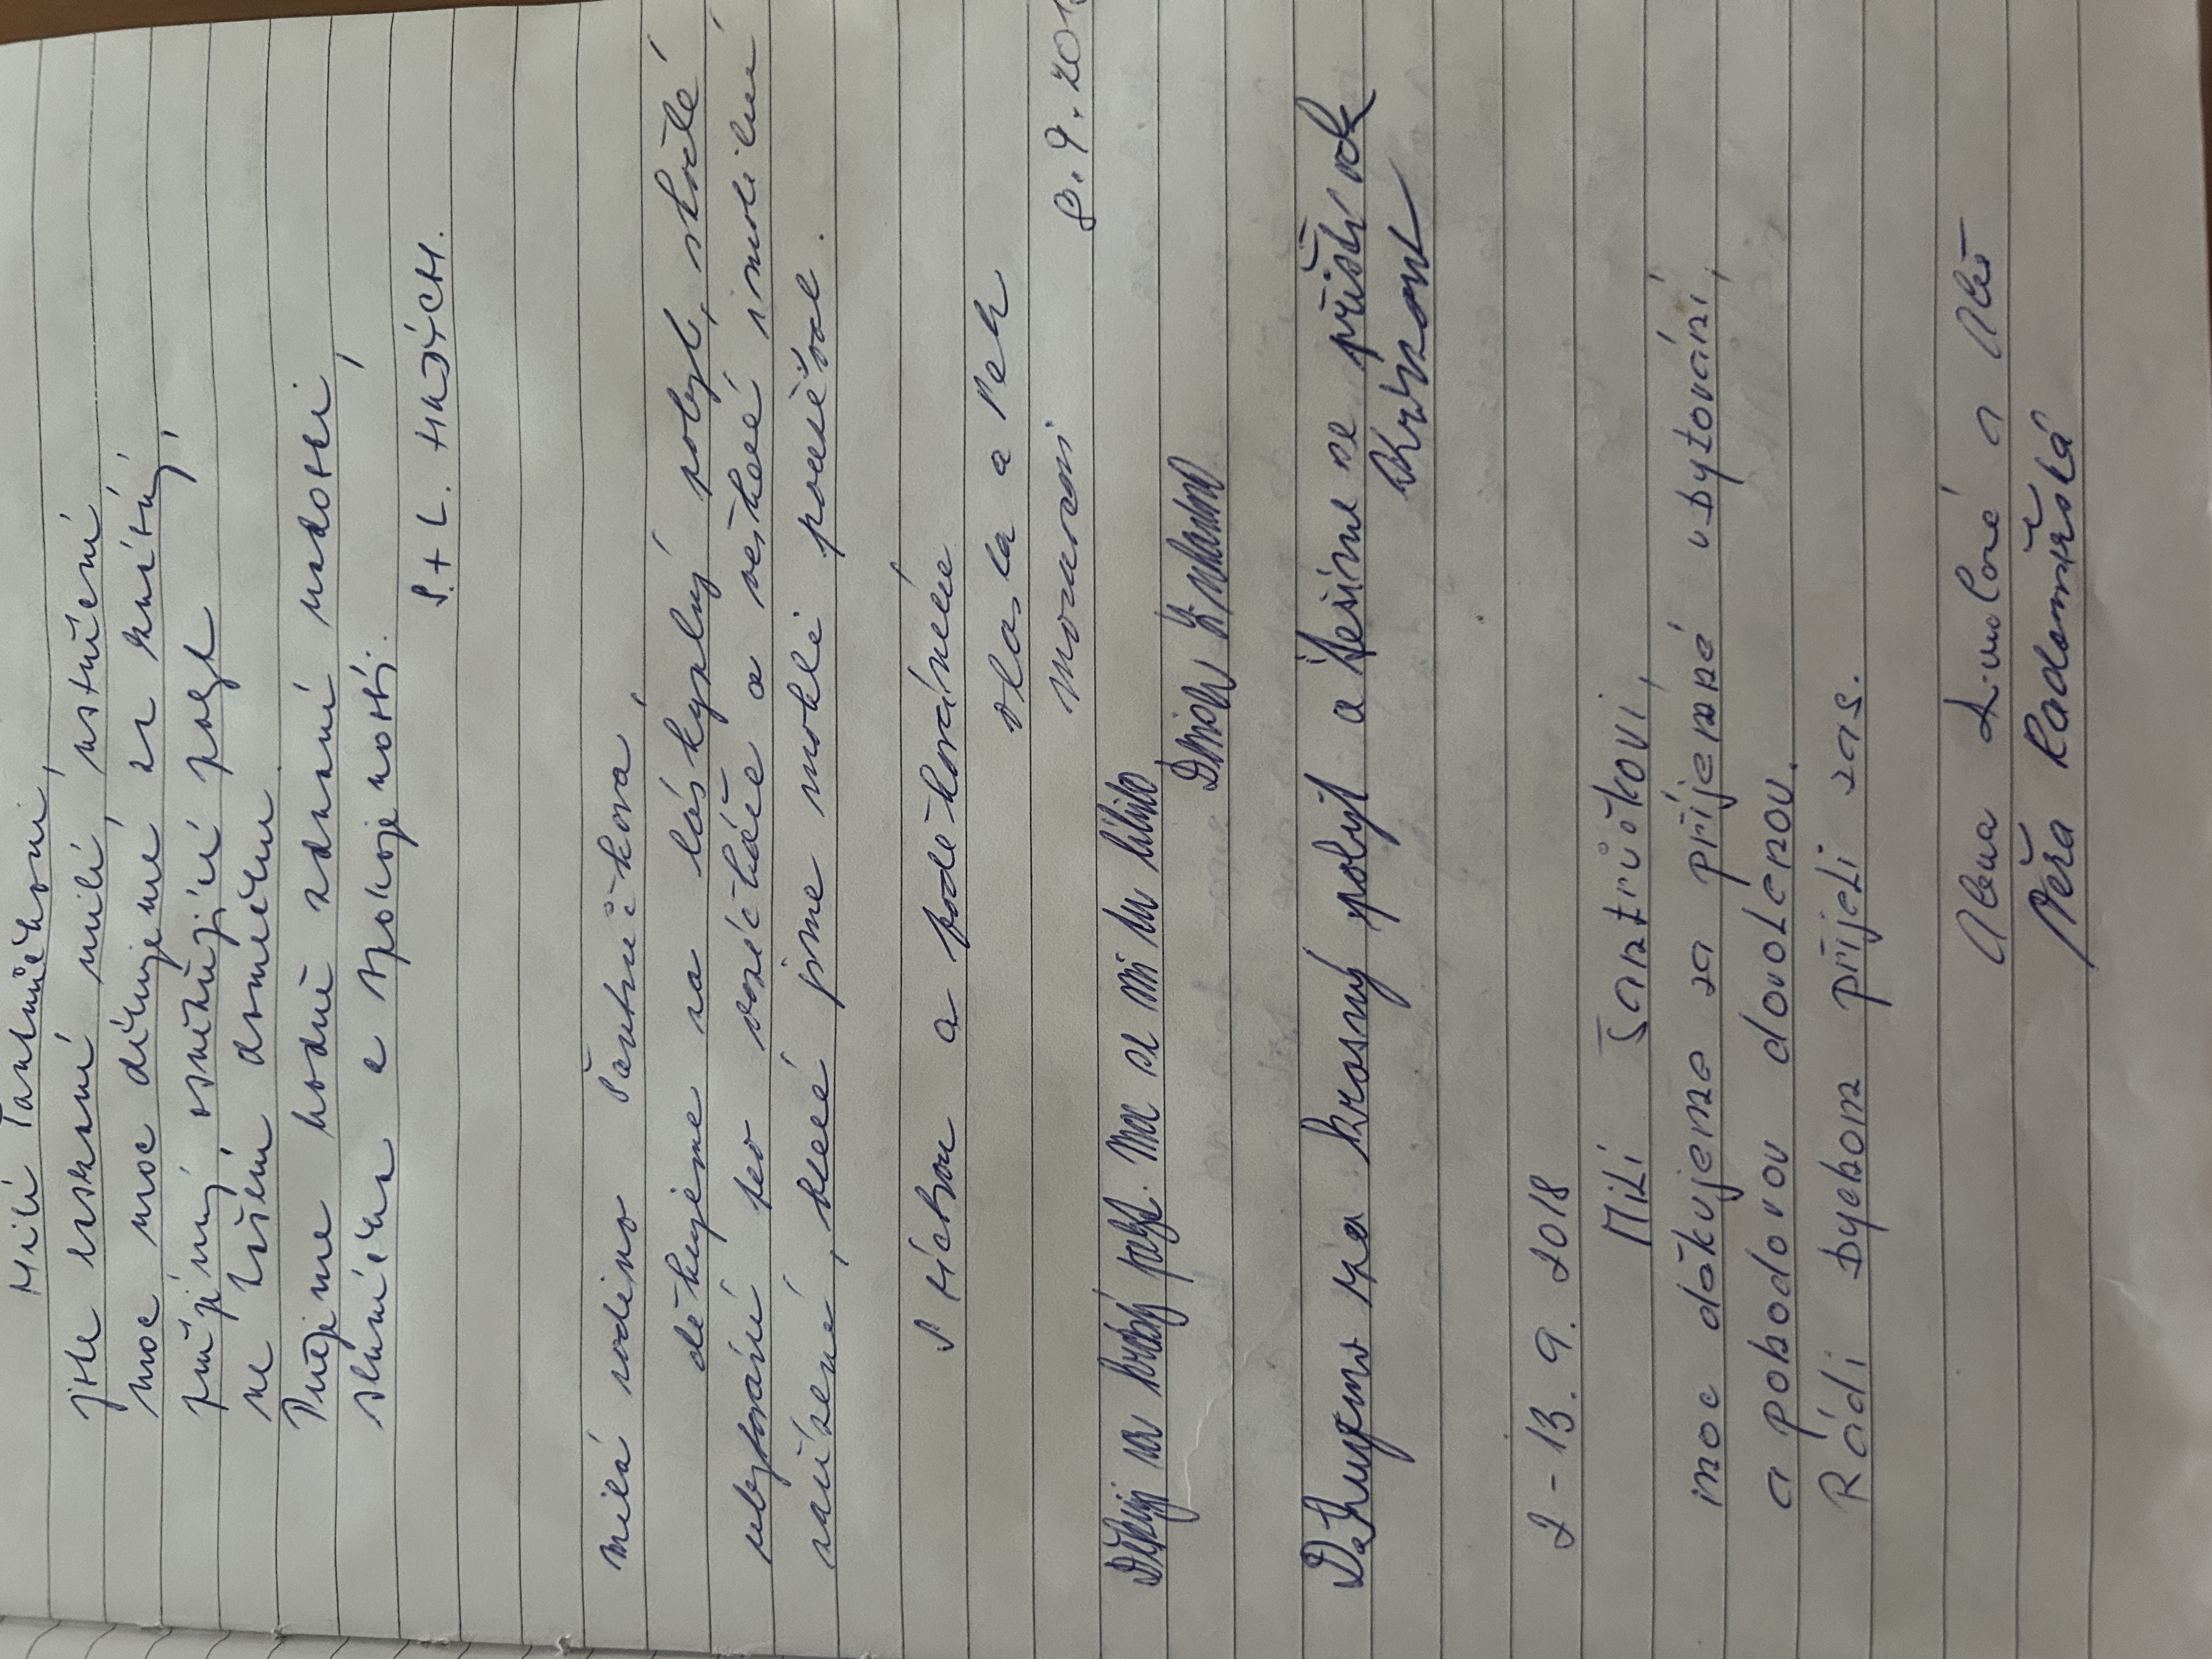 Milí Šantrůčkovi,
jste úžasní milí, vstřícní
moc moc děkujeme za krásný,
příjemný, osvěžující pobyt
ve Vašem domečku.
Přejeme hodně zdraví radosti,
sluníčka a spokojenosti.
P. + L. HAJÝCH.
Milá rodino Šantrůčkova,
děkujeme za láskyplný pobyt, skvělé
ubytování pro vozíčkáře a veškeré i mobilní
zařízení, které jsme mohli používat.
S úctou a poděkováním
Vlasta a Petr
Moravcovi 8. 9. 201
Děkuji za hezký pobyt. Moc se mi tu líbilo
Děkujeme za krásný pobyt a těšíme se příští rok
2 - 13. 9. 2018
Milí Šantrůčkovi,
moc děkujeme za příjemné ubytování,
a pohodovou dovolenou.
Rádi bychom přijeli zas.
Alena a Aleš
Věra Radoměřská